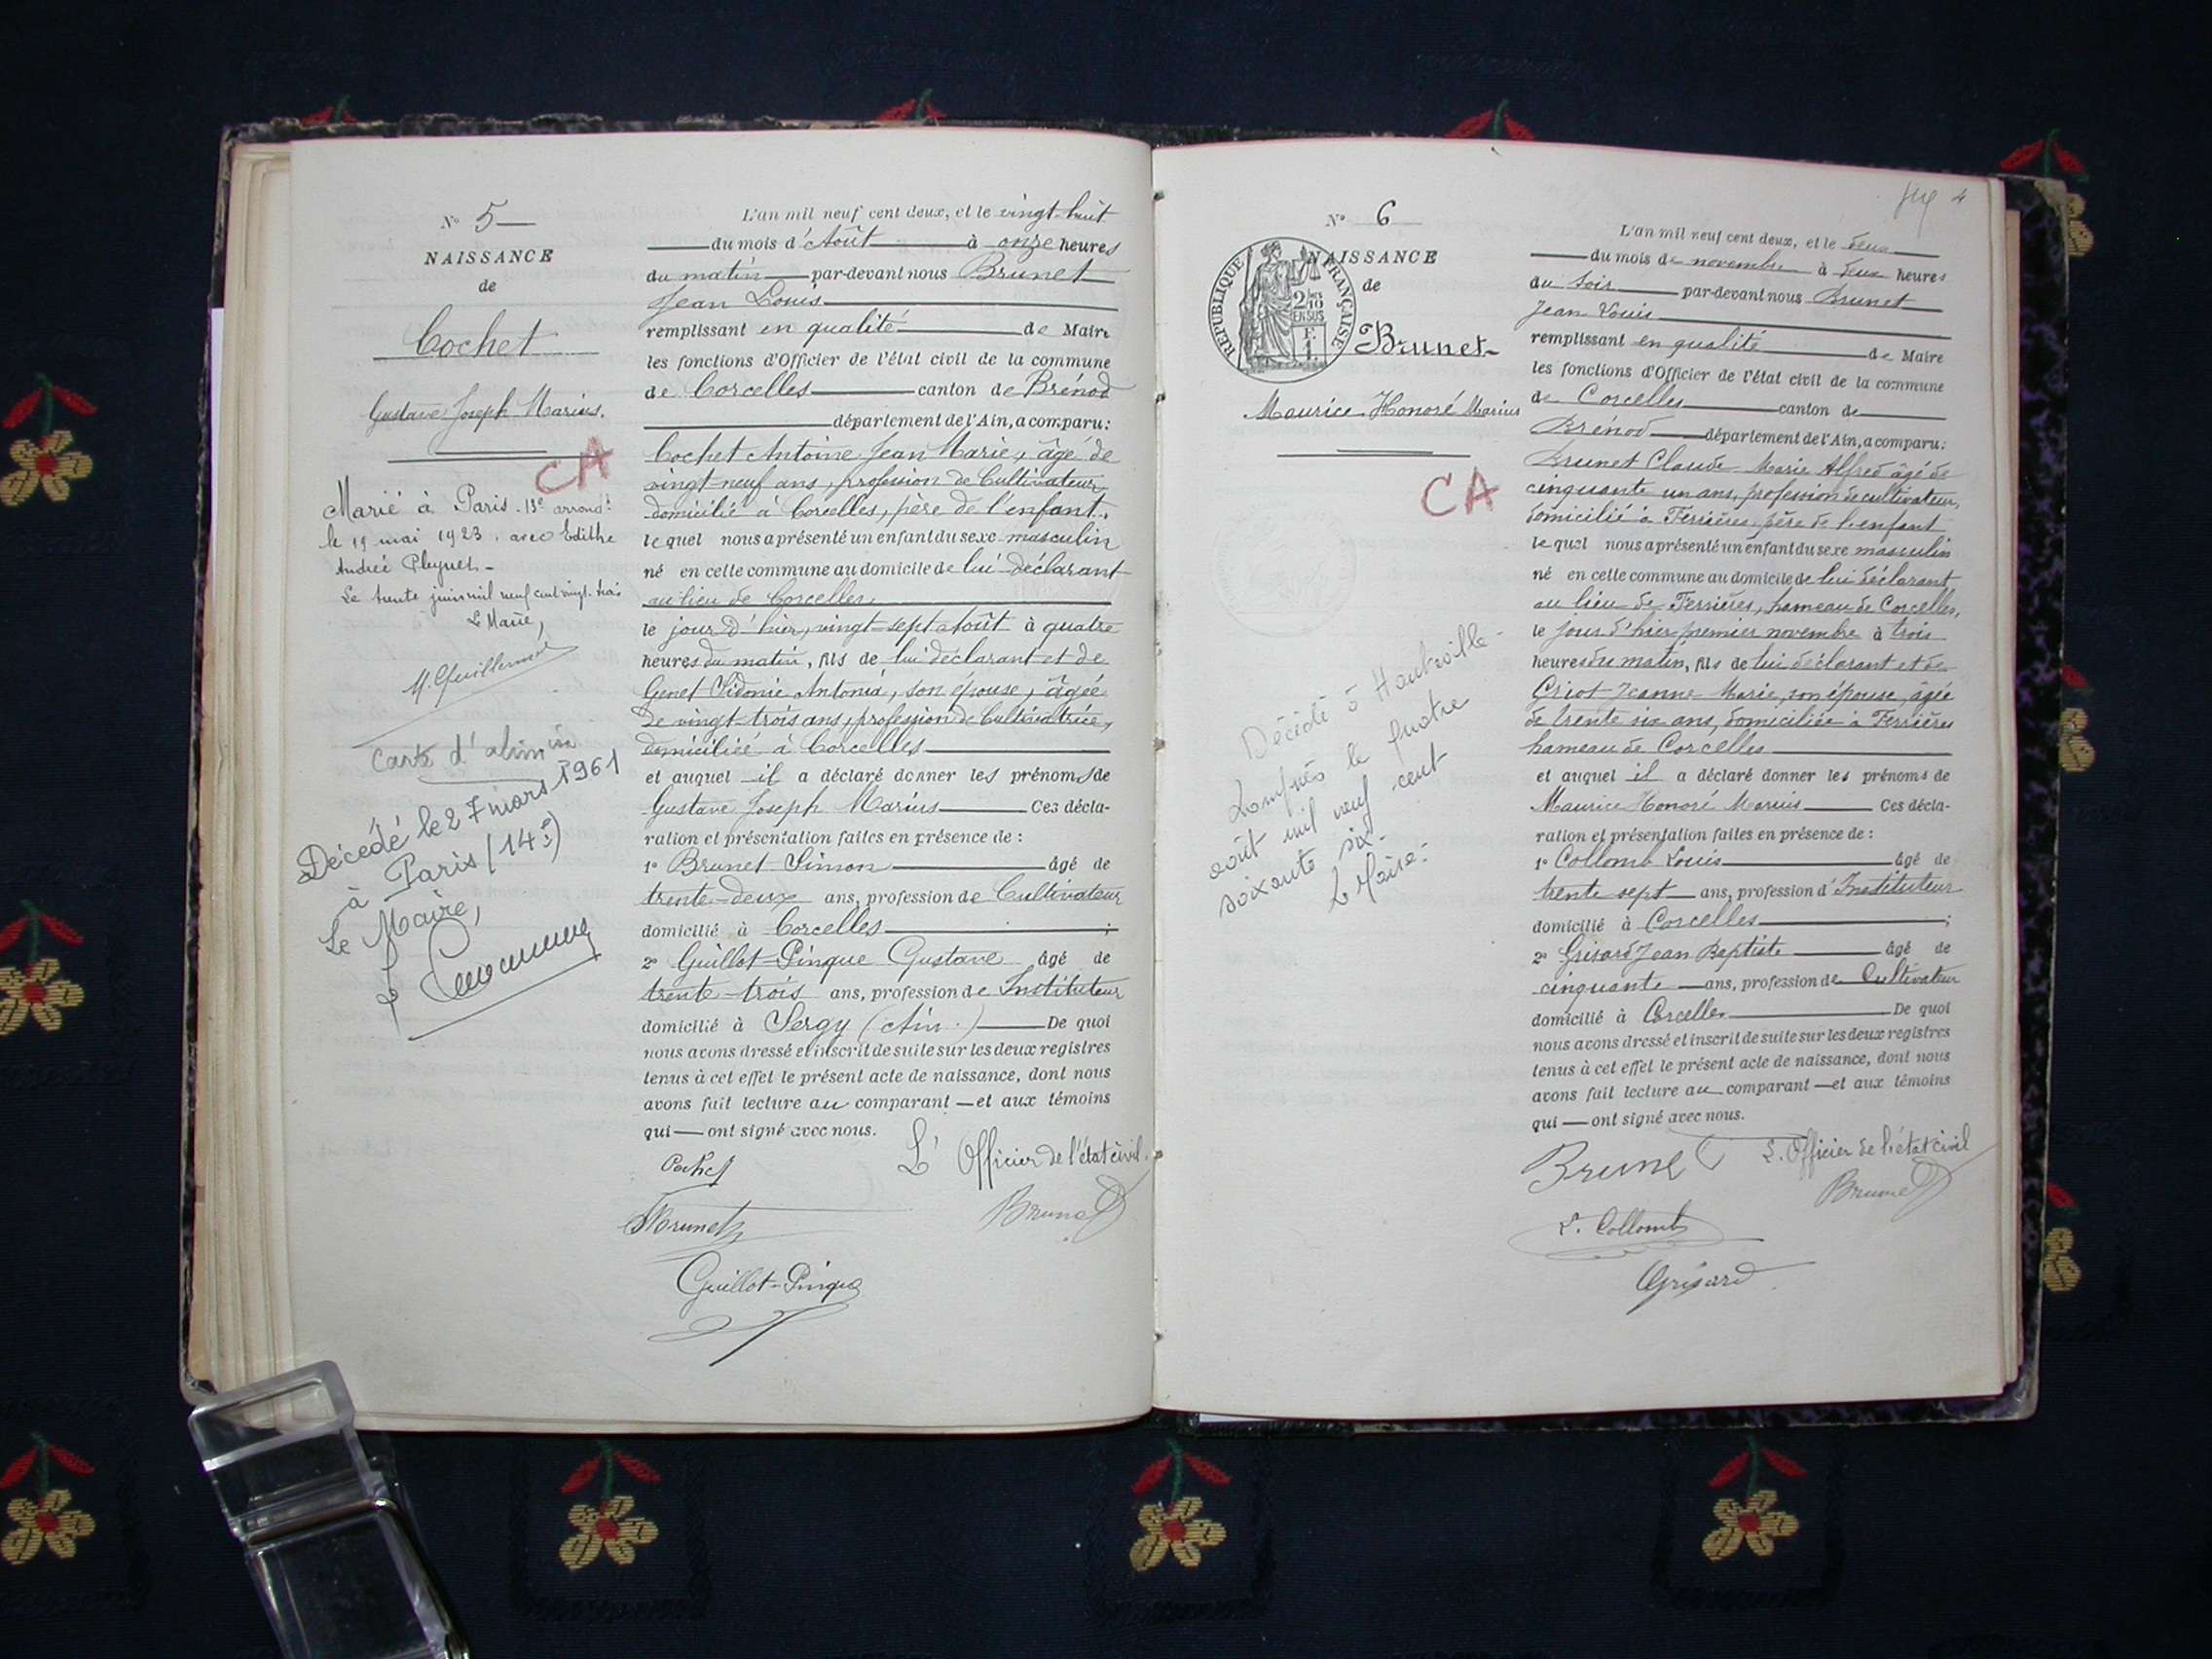 N° 5
NAISSANCE
de
Cochet
Gustave Joseph Marius.
CA
Marié à Paris. 13e arrond.t
le 19 mai 1923. avec Edithe
Andrée
Le trente juin mil neuf cent vingt-trois
Le Maire,
M. Guillermet
Carte d'
Décédé le 27 mars 1961
à Paris (14e)
Le Maire,
L'an mil neuf cent deux, et le vingt-huit
du mois d'Août à onze heures
du matin par-devant nous Brunet
Jean Louis
remplissant en qualité de Maire
les fonctions d'Officier de l'état civil de la commune
de Corcelles canton de Brénod
département de l'Ain, a comparu:
Cochet Antoine Jean Marie, âgé de
vingt-neuf ans, profession de Cultivateur
domicilié à Corcelles, père de l'enfant.
lequel nous a présenté un enfant du sexe masculin
né en cette commune au domicile de lui déclarant
au lieu de Corcelles.
le jour d'hier, vingt-sept Août à quatre
heures du matin, fils de lui déclarant et de
Genet Sidonie Antonia, son épouse, âgée
de vingt-trois ans, profession de Cultivatrice,
domiciliée à Corcelles
et auquel il a déclaré donner les prénoms de
Gustave Joseph Marius Ces décla-
ration et présentation faites en présence de :
1° Brunet Simon âgé de
trente-deux ans, profession de Cultivateur
domicilié à Corcelles ;
2° Guillot-Pinque Gustave âgé de
trente-trois ans, profession de Instituteur
domicilié à Sergy (Ain.) De quoi
nous avons dressé et inscrit de suite sur les deux registres
tenus à cet effet le présent acte de naissance, dont nous
avons fait lecture au comparant et aux témoins
qui ont signé avec nous.
Cochet L'Officier de l'état civil.
SBrunet Brunet
Guillot-Pinque
4
N° 6
NAISSANCE
de
RÉPUBLIQUE FRANÇAISE
2/10 EN SUS
Brunet
Maurice Honoré Marius
CA
Décédé à Hauteville-
Lompnès le quatre
août mil neuf cent
soixante six.
Le Maire:
L'an mil neuf cent deux, et le deux
du mois de novembre à deux heures
du soir par-devant nous Brunet
Jean Louis
remplissant en qualité de Maire
les fonctions d'Officier de l'état civil de la commune
de Corcelles canton de
Brénod département de l'Ain, a comparu:
Brunet Claude Marie Alfred âgé de
cinquante un ans, profession de cultivateur,
domicilié à Ferrières père de l'enfant
lequel nous a présenté un enfant du sexe masculin
né en cette commune au domicile de lui déclarant
au lieu de Ferrières, hameau de Corcelles,
le jour d'hier premier novembre à trois
heures du matin, fils de lui déclarant et de
Griot Jeanne Marie, son épouse, âgée
de trente six ans, domiciliée à Ferrières
hameau de Corcelles
et auquel il a déclaré donner les prénoms de
Maurice Honoré Marius Ces décla-
ration et présentation faites en présence de :
1° Collomb Louis âgé de
trente sept ans, profession d'Instituteur
domicilié à Corcelles ;
2° Grisard Jean Baptiste âgé de
cinquante ans, profession de Cultivateur
domicilié à Corcelles De quoi
nous avons dressé et inscrit de suite sur les deux registres
tenus à cet effet le présent acte de naissance, dont nous
avons fait lecture au comparant et aux témoins
qui ont signé avec nous.
Brunet L'Officier de l'état civil
Brunet
L. Collomb
Grisard